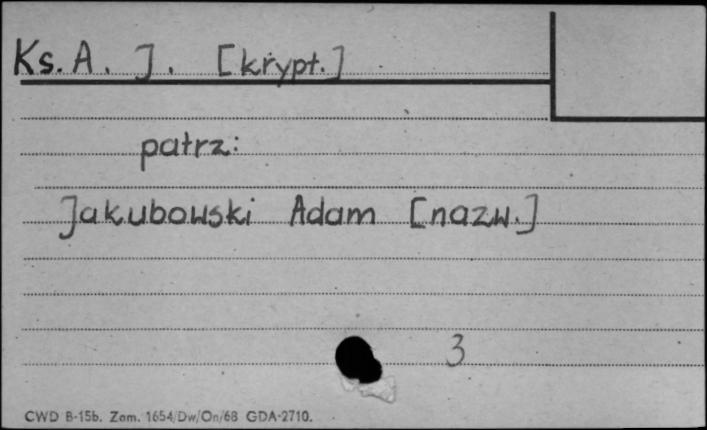 Ks. A. J. [krypt.]
patrz:
Jakubowski Adam [nazw.]
3
CWD B-15b. Zam. 1654/Dw/On/68 GDA-2710.